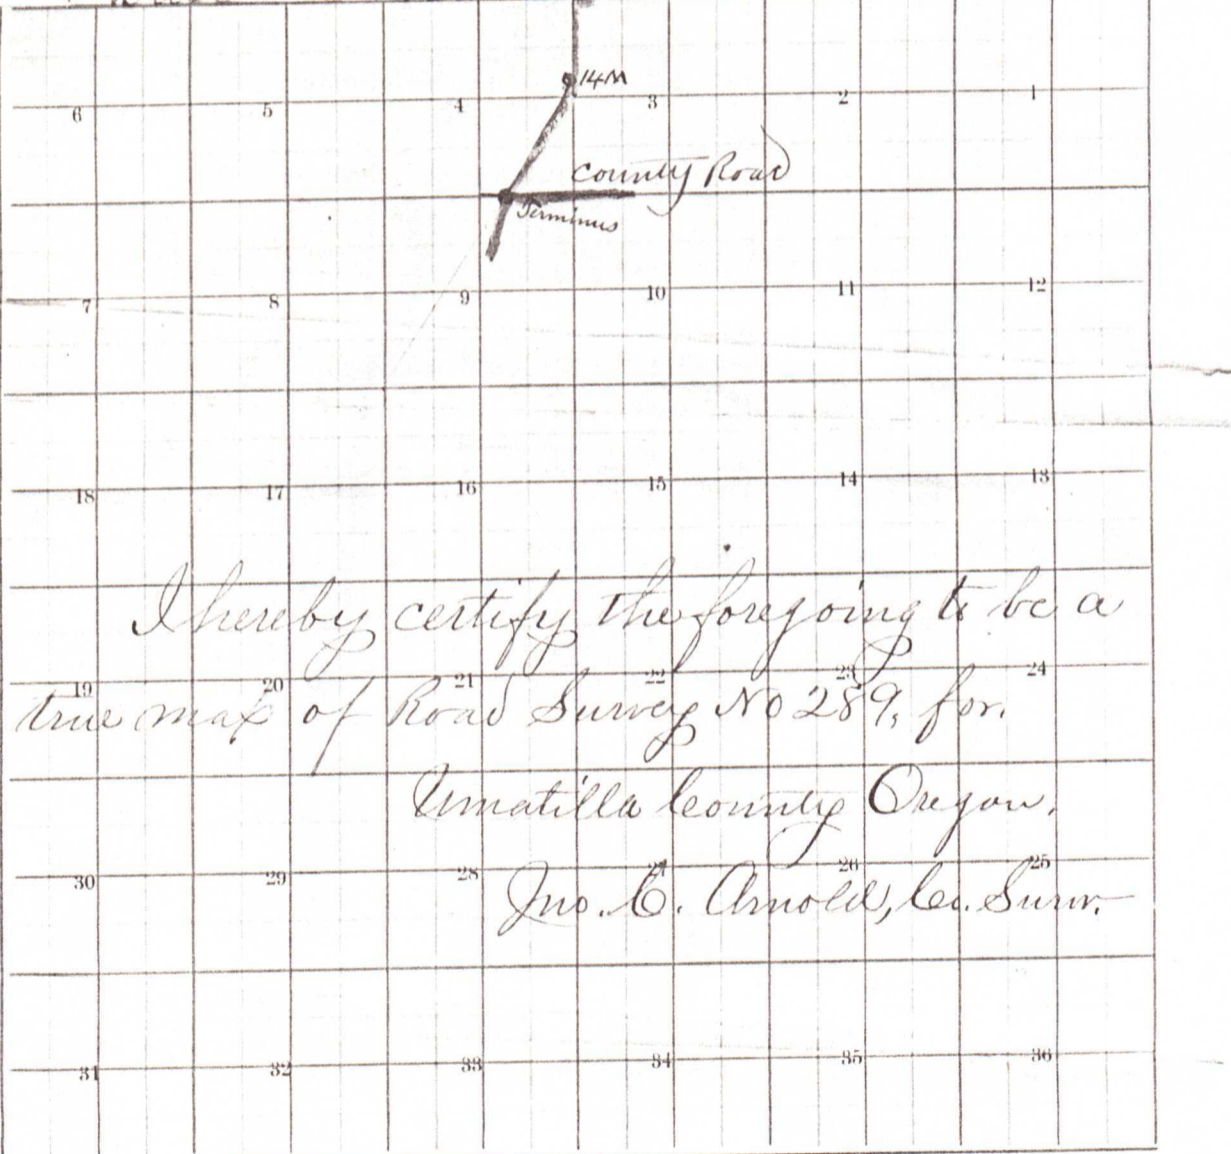 14M
6 5 4 3 2 1
County Road
Terminus
7 8 9 10 11 12
18 17 16 15 14 13
I hereby certify the foregoing to be a
19 20 21 22 23 24
true map of Road Survey No 289, for.
Umatilla County Oregon.
30 29 28 27 26 25
Jno. C. Arnold, Co. Survr.
31 32 33 34 35 36